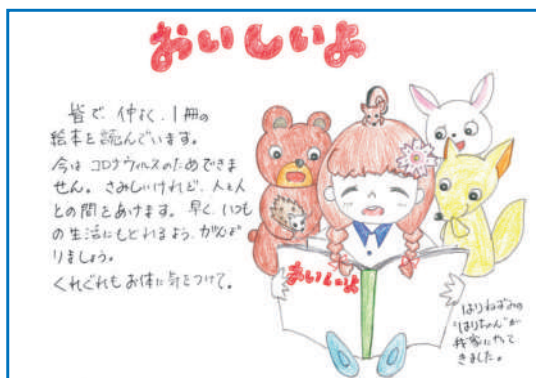 おいしいよ
皆で、仲よく、1冊の
絵本を読んでいます。
今はコロナウィルスのためできま
せん。さみしいけれど、人と人
との間をあけます。早く、いつも
の生活にもどれるよう、がんば
りましょう。
くれぐれもお体に気をつけて。
おいしいよ
はりねずみの
"はりちゃん"が
我家にやって
きました。